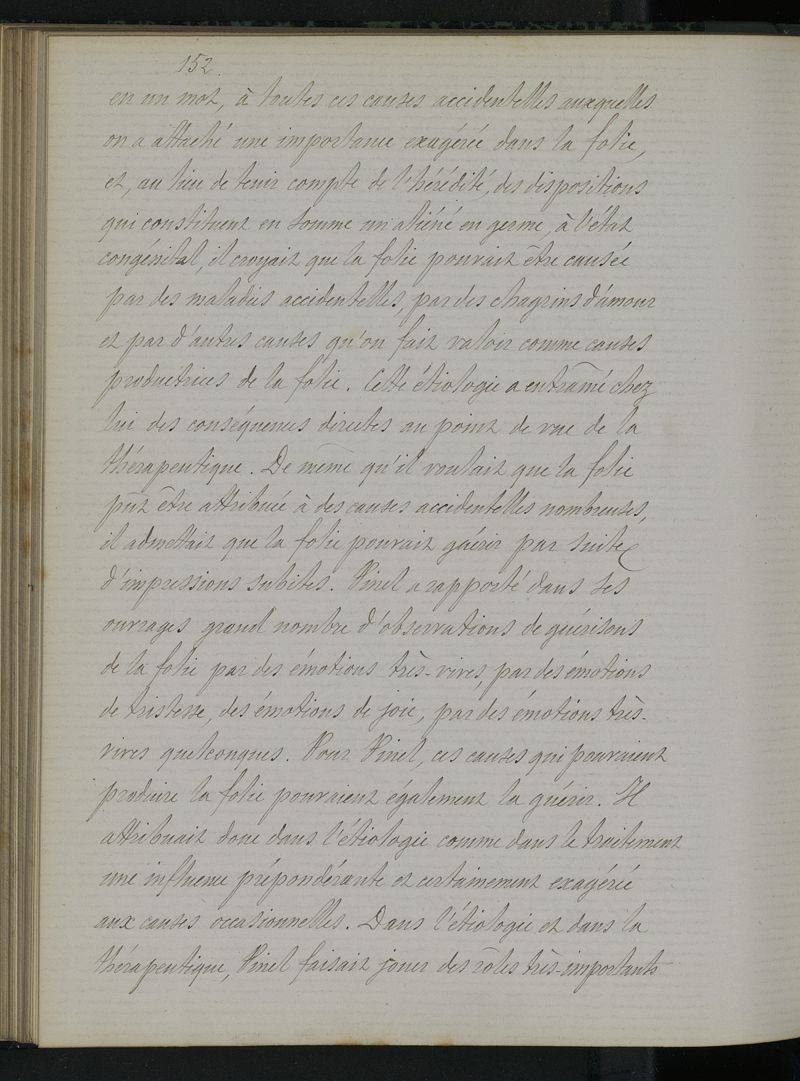 152.
en un mot, à toutes ces causes accidentelles auxquelles
on a attaché une importance exagérée dans la folie,
et, au lieu de tenir compte de l'hérédité, des dispositions
qui constituent en somme un aliéné en germe, à l'état
congénital, il croyait que la folie pouvait être causée
par des maladies accidentelles, par des chagrins d'amour
et par d'autres causes qu'on fait valoir comme causes
productrices de la folie. Cette étiologie a entraîné chez
lui des conséquences directes au point de vue de la
thérapeutique. De même qu'il voulait que la folie
pût être attribuée à des causes accidentelles nombreuses,
il admettait que la folie pouvait guérir par suite
d'impressions subites. Pinel a rapporté dans ses
ouvrages grand nombre d'observations de guérisons
de la folie par des émotions très-vives, par des émotions
de tristesse, des émotions de joie, par des émotions très-
vives quelconques. Pour Pinel, ces causes qui pouvaient
produire la folie pouvaient également la guérir. Il
attribuait donc dans l'étiologie comme dans le traitement
une influence prépondérante et certainement exagérée
aux causes occasionnelles. Dans l'étiologie et dans la
thérapeutique, Pinel faisait jouer des rôles très-importants